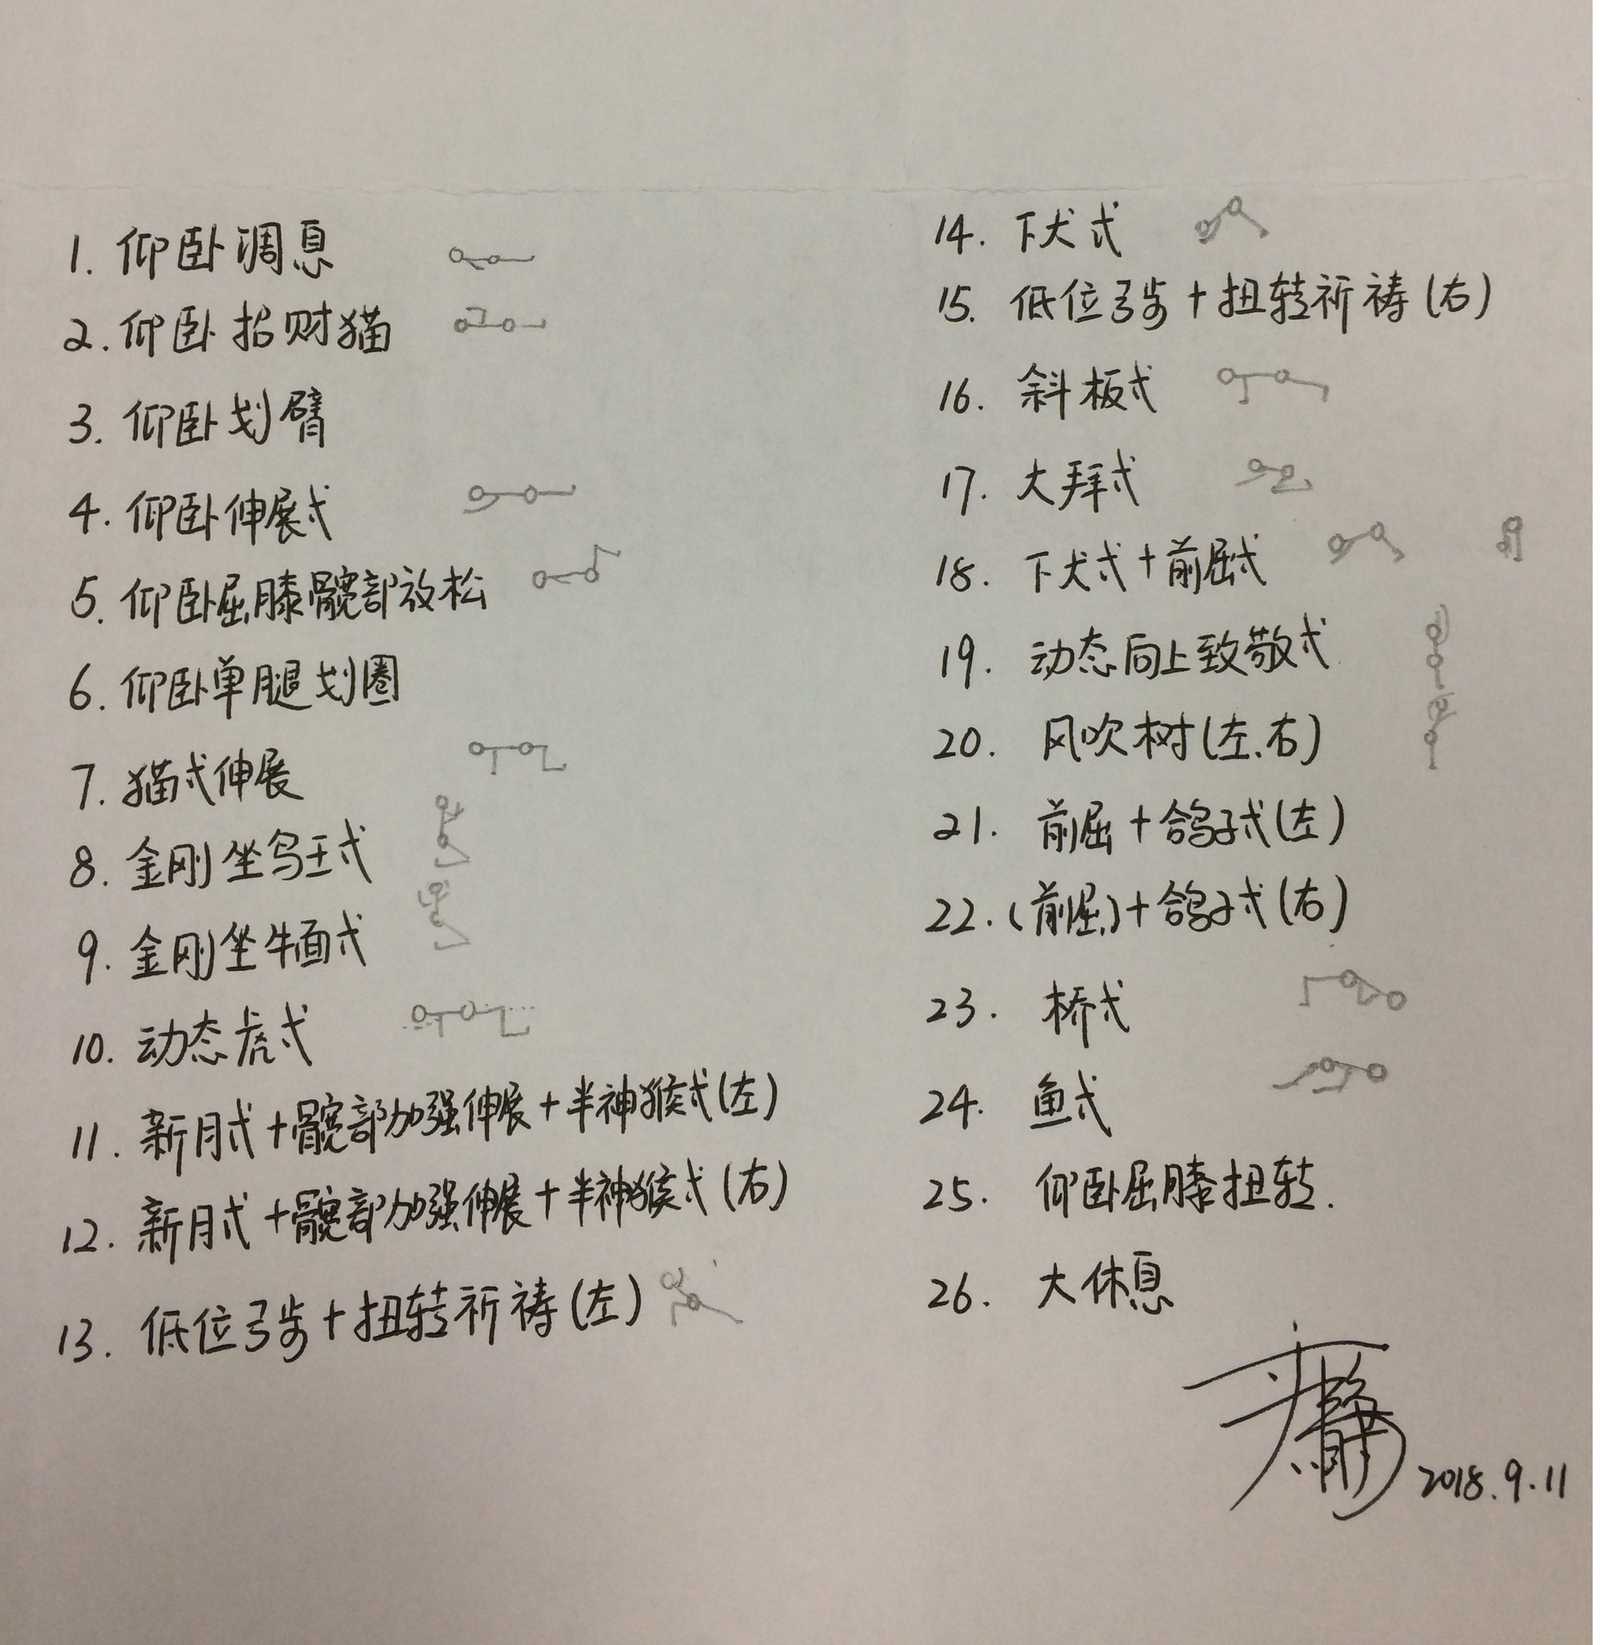 1. 仰卧调息
2. 仰卧招财猫
3. 仰卧划臂
4. 仰卧伸展式
5. 仰卧屈膝髋部放松
6. 仰卧单腿划圈
7. 猫式伸展
8. 金刚坐鸟王式
9. 金刚坐牛面式
10. 动态虎式
11. 新月式+髋部加强伸展+半神猴式(左)
12. 新月式+髋部加强伸展+半神猴式(右)
13. 低位弓步+扭转祈祷(左)
14. 下犬式
15. 低位弓步+扭转祈祷(右)
16. 斜板式
17. 大拜式
18. 下犬式+前屈式
19. 动态向上致敬式
20. 风吹树(左.右)
21. 前屈+鸽子式(左)
22. (前屈)+鸽子式(右)
23. 桥式
24. 鱼式
25. 仰卧屈膝扭转.
26. 大休息
2018.9.11